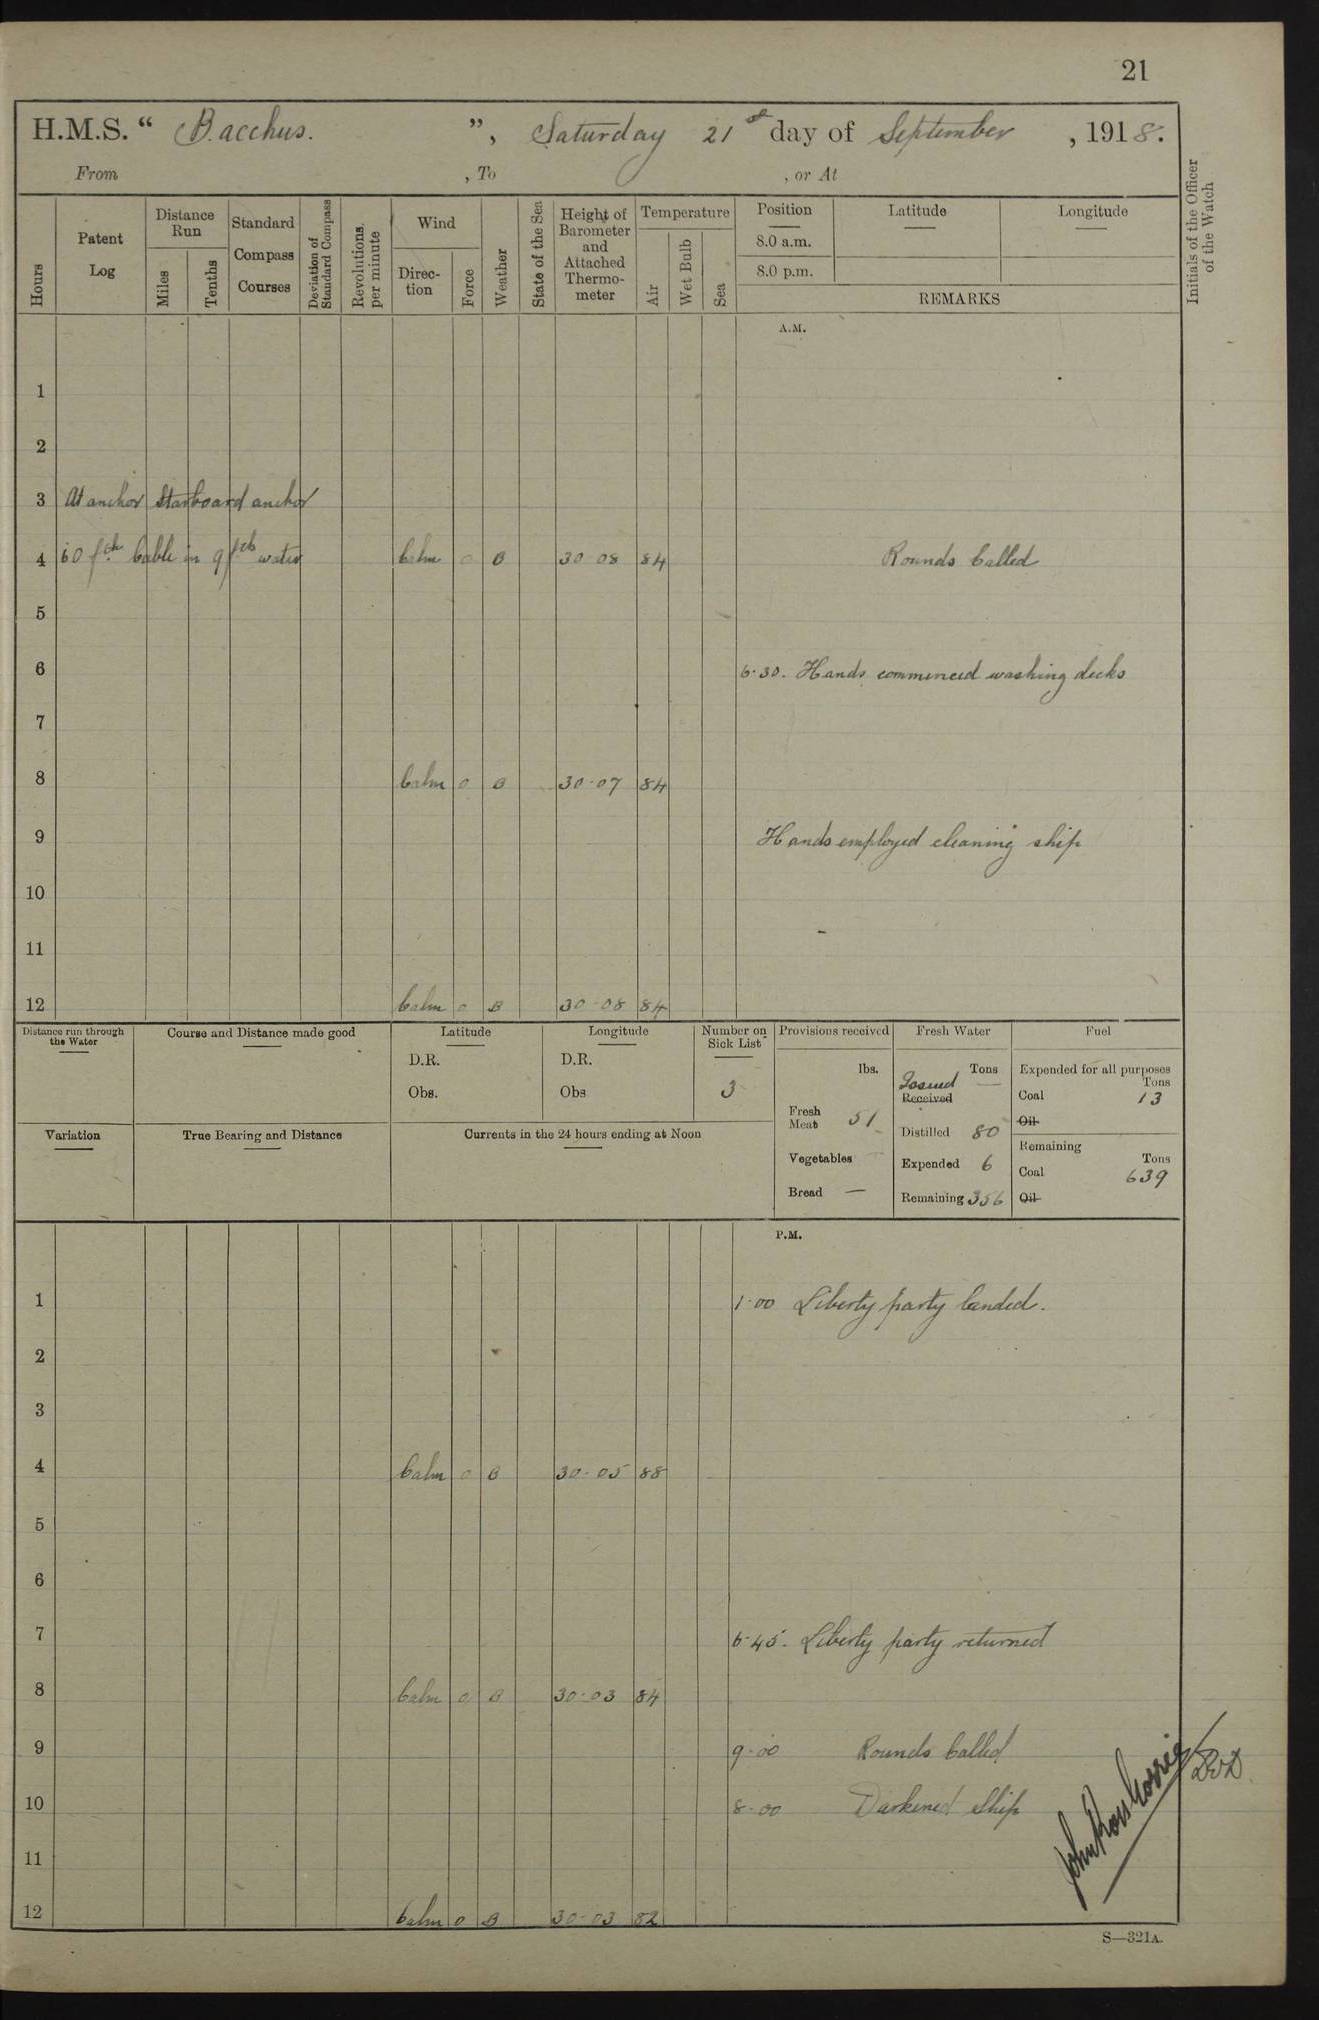 21
H.M.S. “ Bacchus. ”, Saturday 21st day of September , 1918.
From , To , or At
Hours
Patent Log
Distance Run
Miles
Tenths
Standard Compass Courses
Deviation of Standard Compass
Revolutions per minute
Wind
Direc-tion
Force
Weather
State of the Sea
Height of Barometer and Attached Thermo-meter
Temperature
Air
Wet Bulb
Sea
Position
8.0 a.m.
8.0 p.m.
Latitude
Longitude
REMARKS
Initials of the Officer of the Watch
A.M.
1
2
3 At anchor Starboard anchor
4 60 fth Cable in 9 fth water Calm 0 B 30 08 84 Rounds Called
5
6 6·30. Hands commenced washing decks
7
8 Calm 0 B 30·07 84
9 Hands employed cleaning ship
10
11
12 Calm 0 B 30·08 84
Distance run through the Water
Course and Distance made good
Latitude
D.R.
Obs.
Longitude
D.R.
Obs
Number on Sick List
3
Provisions received
lbs.
Fresh Meat 51
Vegetables
Bread —
Fresh Water
Tons
Issued —
Received
Distilled 80
Expended 6
Remaining 356
Fuel
Expended for all purposes
Tons
Coal 13
Oil
Remaining
Tons
Coal 639
Oil
Variation
True Bearing and Distance
Currents in the 24 hours ending at Noon
P.M.
1 1·00 Liberty party landed.
2
3
4 Calm 0 B 30·05 88
5
6
7 6·45. Liberty party returned
8 Calm 0 B 30·03 84
9 9·00 Rounds Called
10 8·00 Darkened Ship
11
12 Calm 0 B 30·03 82
S—321A.